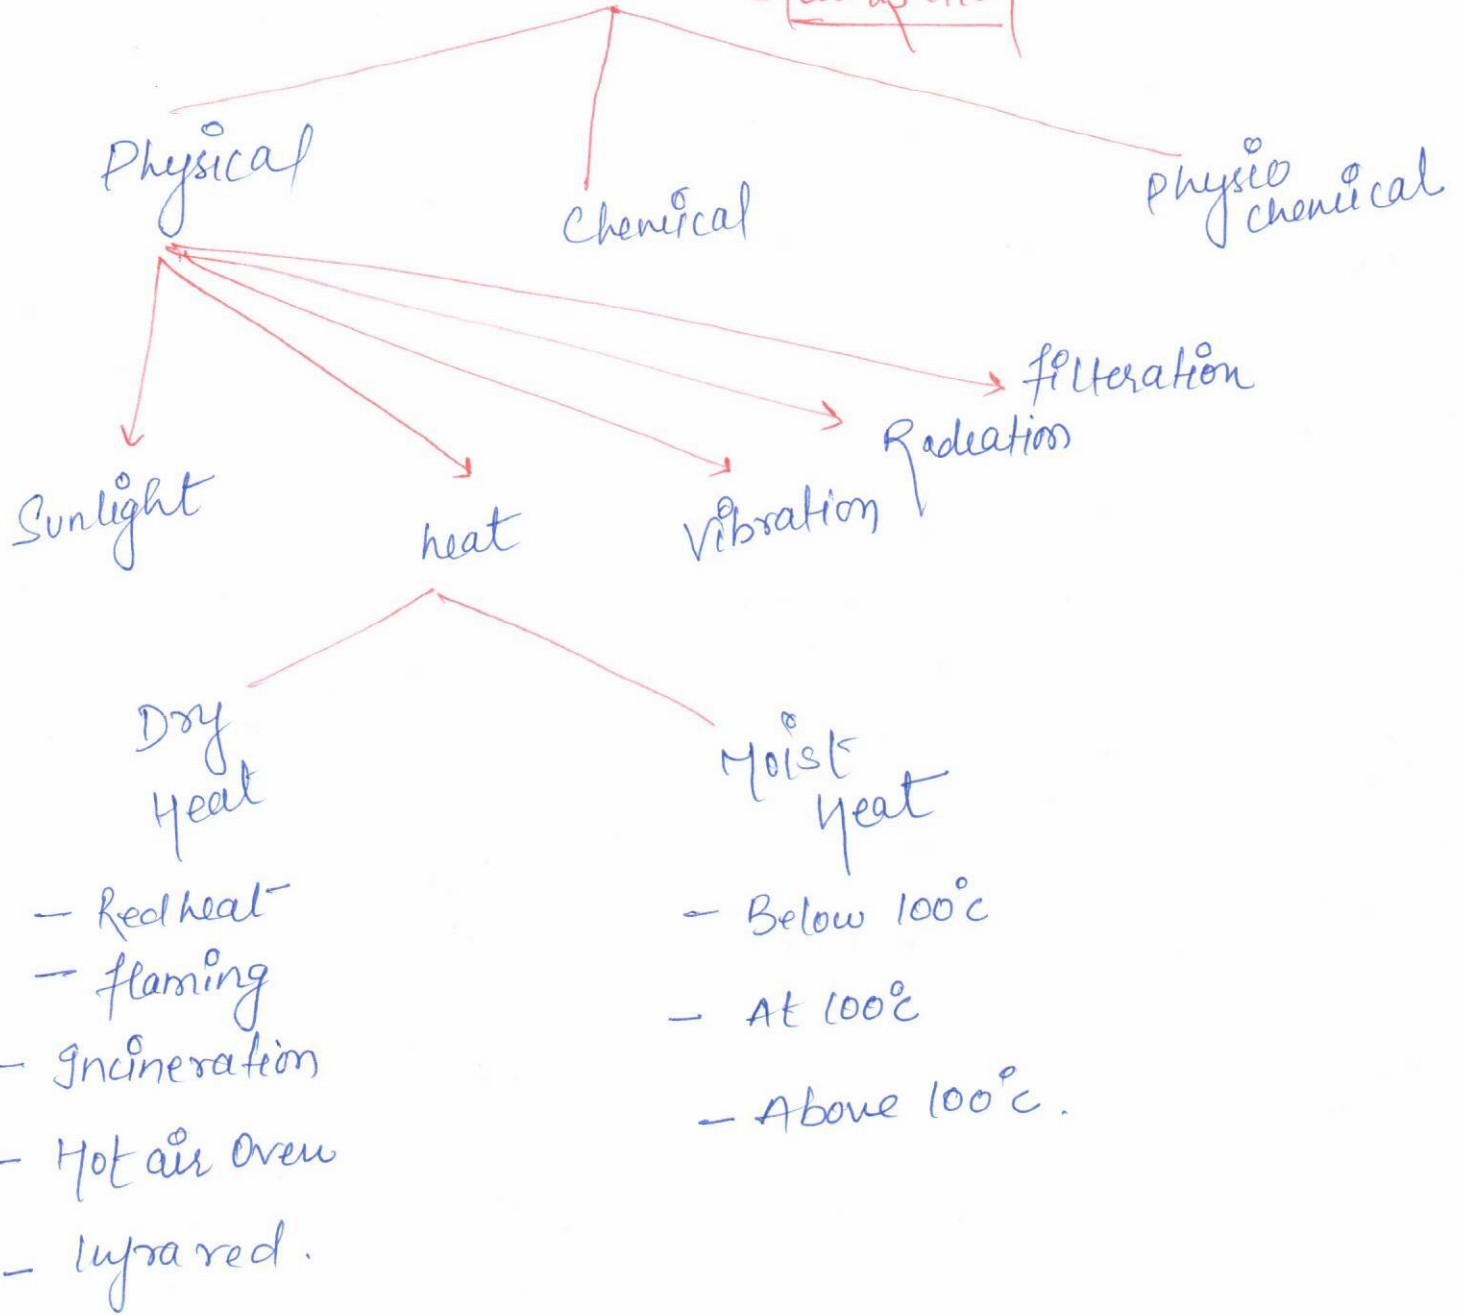 Physical
Chemical
Physio
chemical
filteration
Radiation
Sunlight
heat
Vibration
Dry
Heat
Moist
Heat
- Red heat
- flaming
- Incineration
- Hot air Oven
- Infra red.
- Below 100°c
- At 100°c
- Above 100°c.